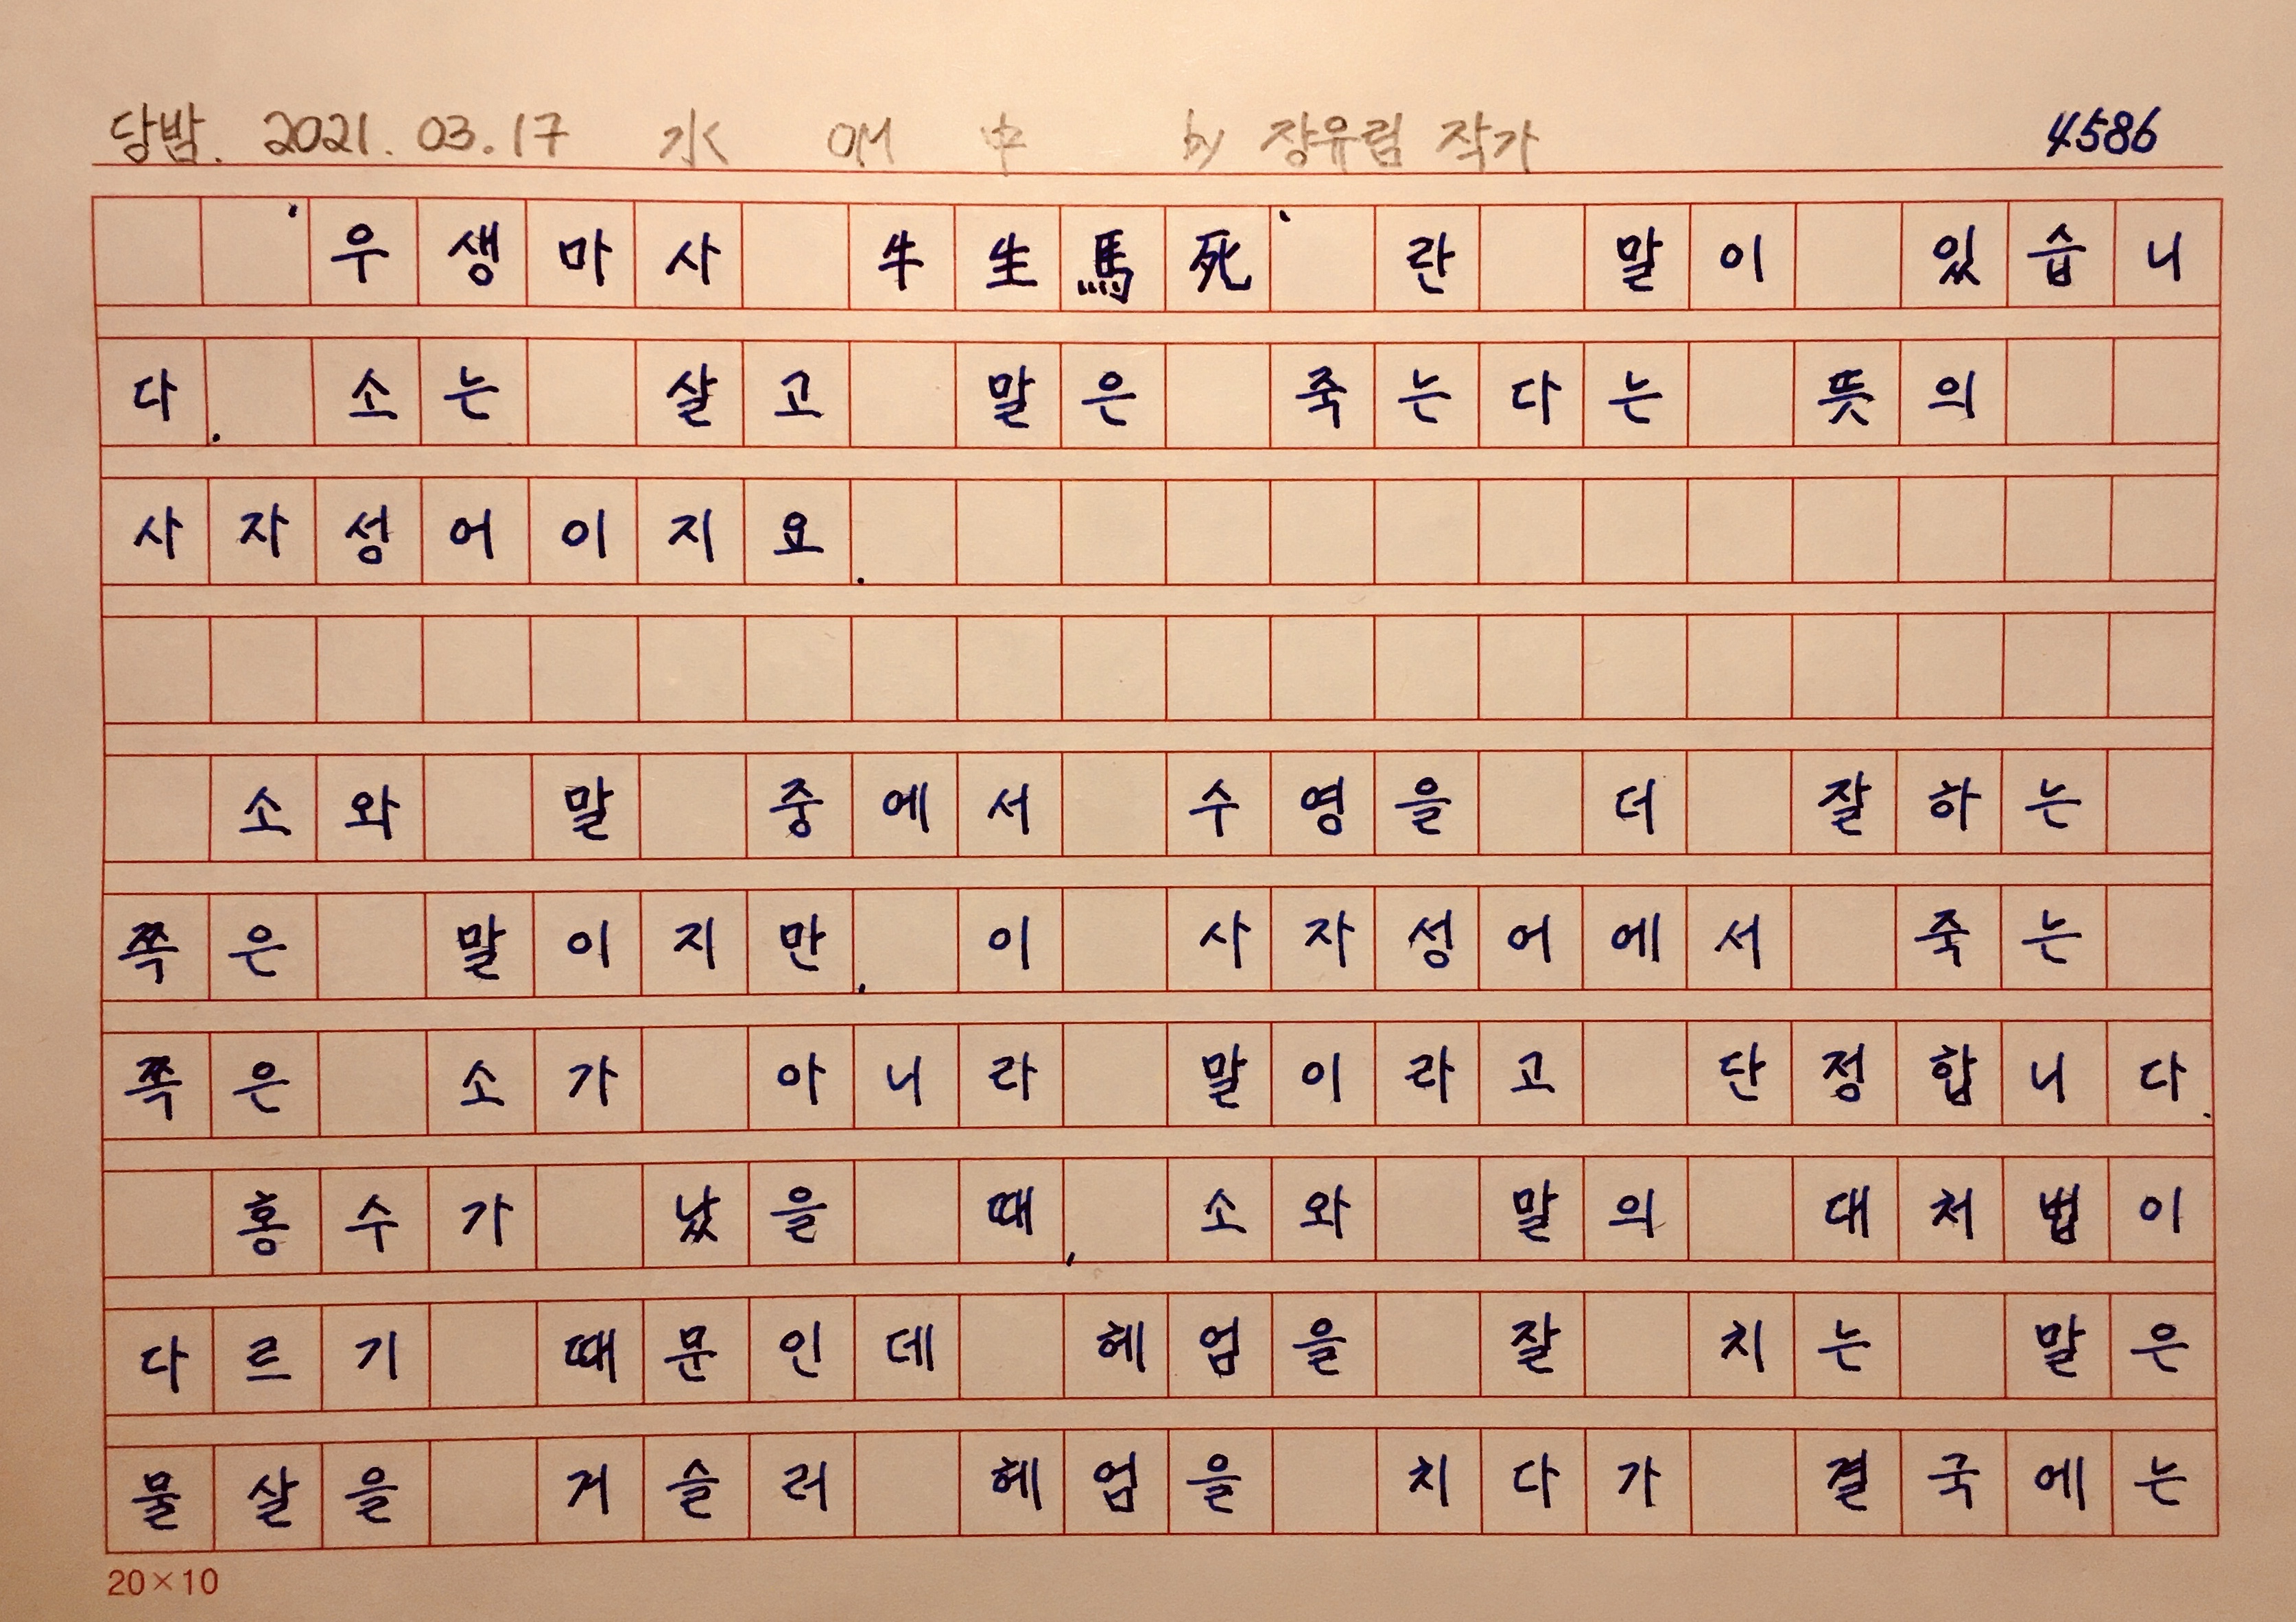 당밤. 2021. 03. 17 水 OM 中 by 장유림 작가 4586
'우생마사 牛生馬死' 란 말이 있습니
다. 소는 살고 말은 죽는다는 뜻의
사자성어이지요.
소와 말 중에서 수영을 더 잘하는
쪽은 말이지만, 이 사자성어에서 죽는
쪽은 소가 아니라 말이라고 단정합니다.
홍수가 났을 때, 소와 말의 대처법이
다르기 때문인데 헤엄을 잘 치는 말은
물살을 거슬러 헤엄을 치다가 결국에는
20×10